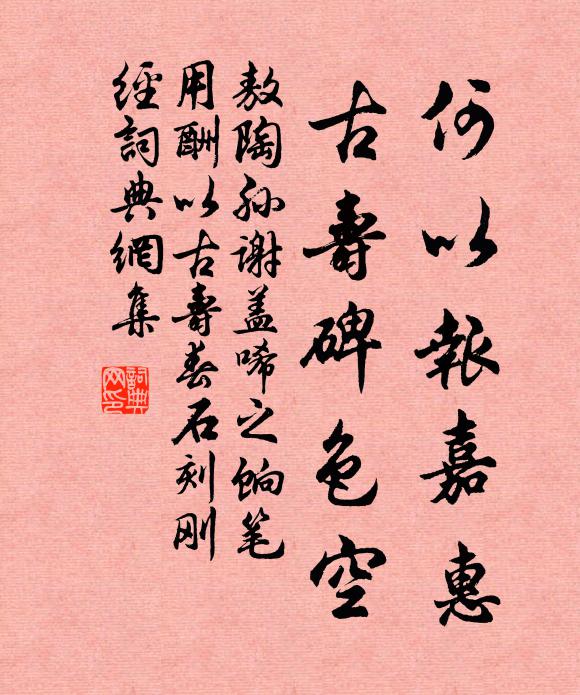 何以報嘉惠
古壽碑色空
敖陶孫謝盖晞之餉笔
用酬以古壽春石刻剛
經詞典網集
詞典
网印